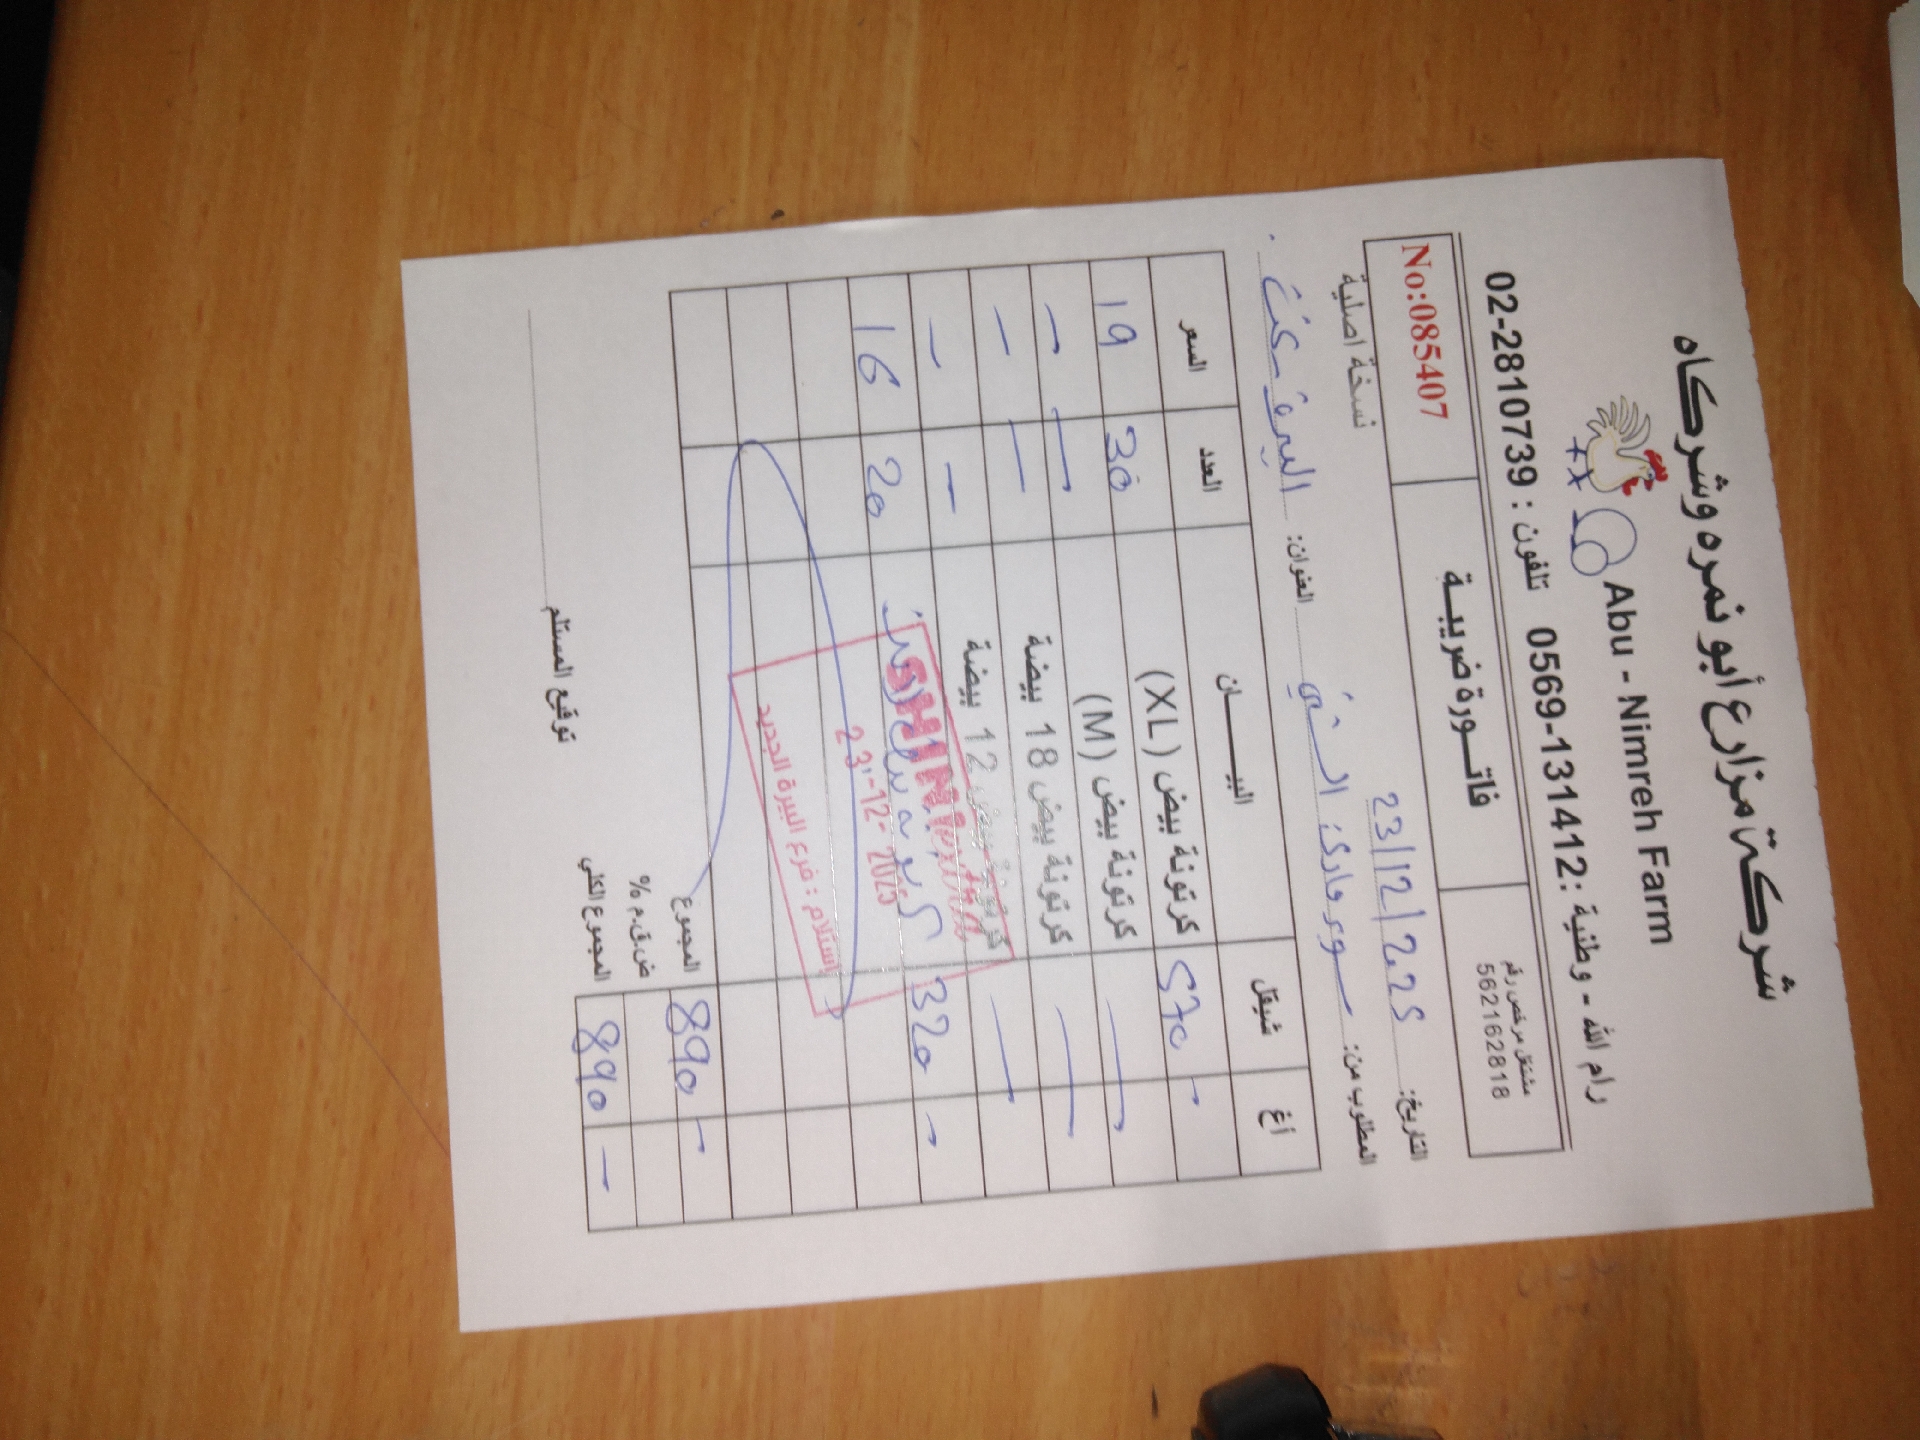 شركة مزارع أبو نمره وشركاه
Abu - Nimreh Farm
رام الله - وطنية : 0569-131412 تلفون : 02-2810739
مشتغل مرخص رقم
562162818
فاتـــورة ضريبية
No:085407
التاريخ: 23/12/2025
نسخة اصلية
المطلوب من: العنوان: البيرة
أغ شيقل البيـــــان العدد السعر
- 570 كرتونة بيض (XL) 30 19
كرتونة بيض (M)
كرتونة بيض 18 بيضة
كرتونة بيض 12 بيضة
- 320 20 16
SHINI
23-12-2025
استلام : فرع البيرة الجديد
- 890 المجموع
ض.ق.م %
- 890 المجموع الكلي
توقيع المستلم